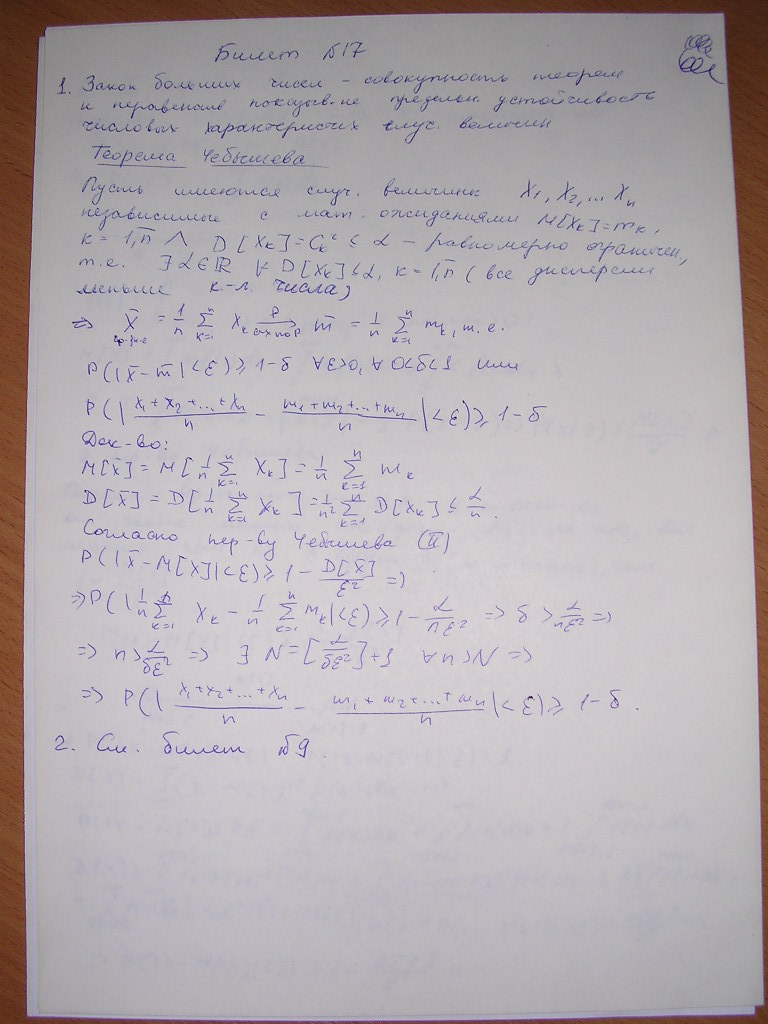 Билет №17
1. Закон больших чисел – совокупность теорем
и неравенств показыв-ие предельн. устойчивость
числовых характеристик случ. величин
Теорема Чебышева
Пусть имеются случ. величины X₁, X₂, ... Xₙ
независимые с мат. ожиданиями M[Xₖ]=mₖ,
k = 1,n̅ ∧ D[Xₖ]=Cₖ² ≤ α – равномерно ограничен,
т.е. ∃ α∈ℝ ∀ D[Xₖ]≤α, k = 1,n̅ (все дисперсии
меньше к-л. числа)
=> X̅ = 1/n ∑ₖ₌₁ⁿ Xₖ →ᴾ сх по P m̅ = 1/n ∑ₖ₌₁ⁿ mₖ, т.е.
P(|X̅ – m̅|<ε) ≥ 1–δ ∀ε>0, ∀ 0<δ<1 или
P(| (X₁+X₂+...+Xₙ)/n – (m₁+m₂+...+mₙ)/n |<ε) ≥ 1–δ
Док-во:
M[X̅] = M[1/n ∑ₖ₌₁ⁿ Xₖ] = 1/n ∑ₖ₌₁ⁿ mₖ
D[X̅] = D[1/n ∑ₖ₌₁ⁿ Xₖ] = 1/n² ∑ₖ₌₁ⁿ D[Xₖ] ≤ α/n.
Согласно нер-ву Чебышева (II)
P(|X̅ – M[X̅]|<ε) ≥ 1 – D[X̅]/ε² =>
=> P(|1/n ∑ₖ₌₁ⁿ Xₖ – 1/n ∑ₖ₌₁ⁿ mₖ|<ε) ≥ 1 – α/nε² => δ > α/nε² =>
=> n > α/δε² => ∃ N = [α/δε²]+1 ∀n>N =>
=> P(| (X₁+X₂+...+Xₙ)/n – (m₁+m₂+...+mₙ)/n |<ε) ≥ 1–δ.
2. См. билет №9.